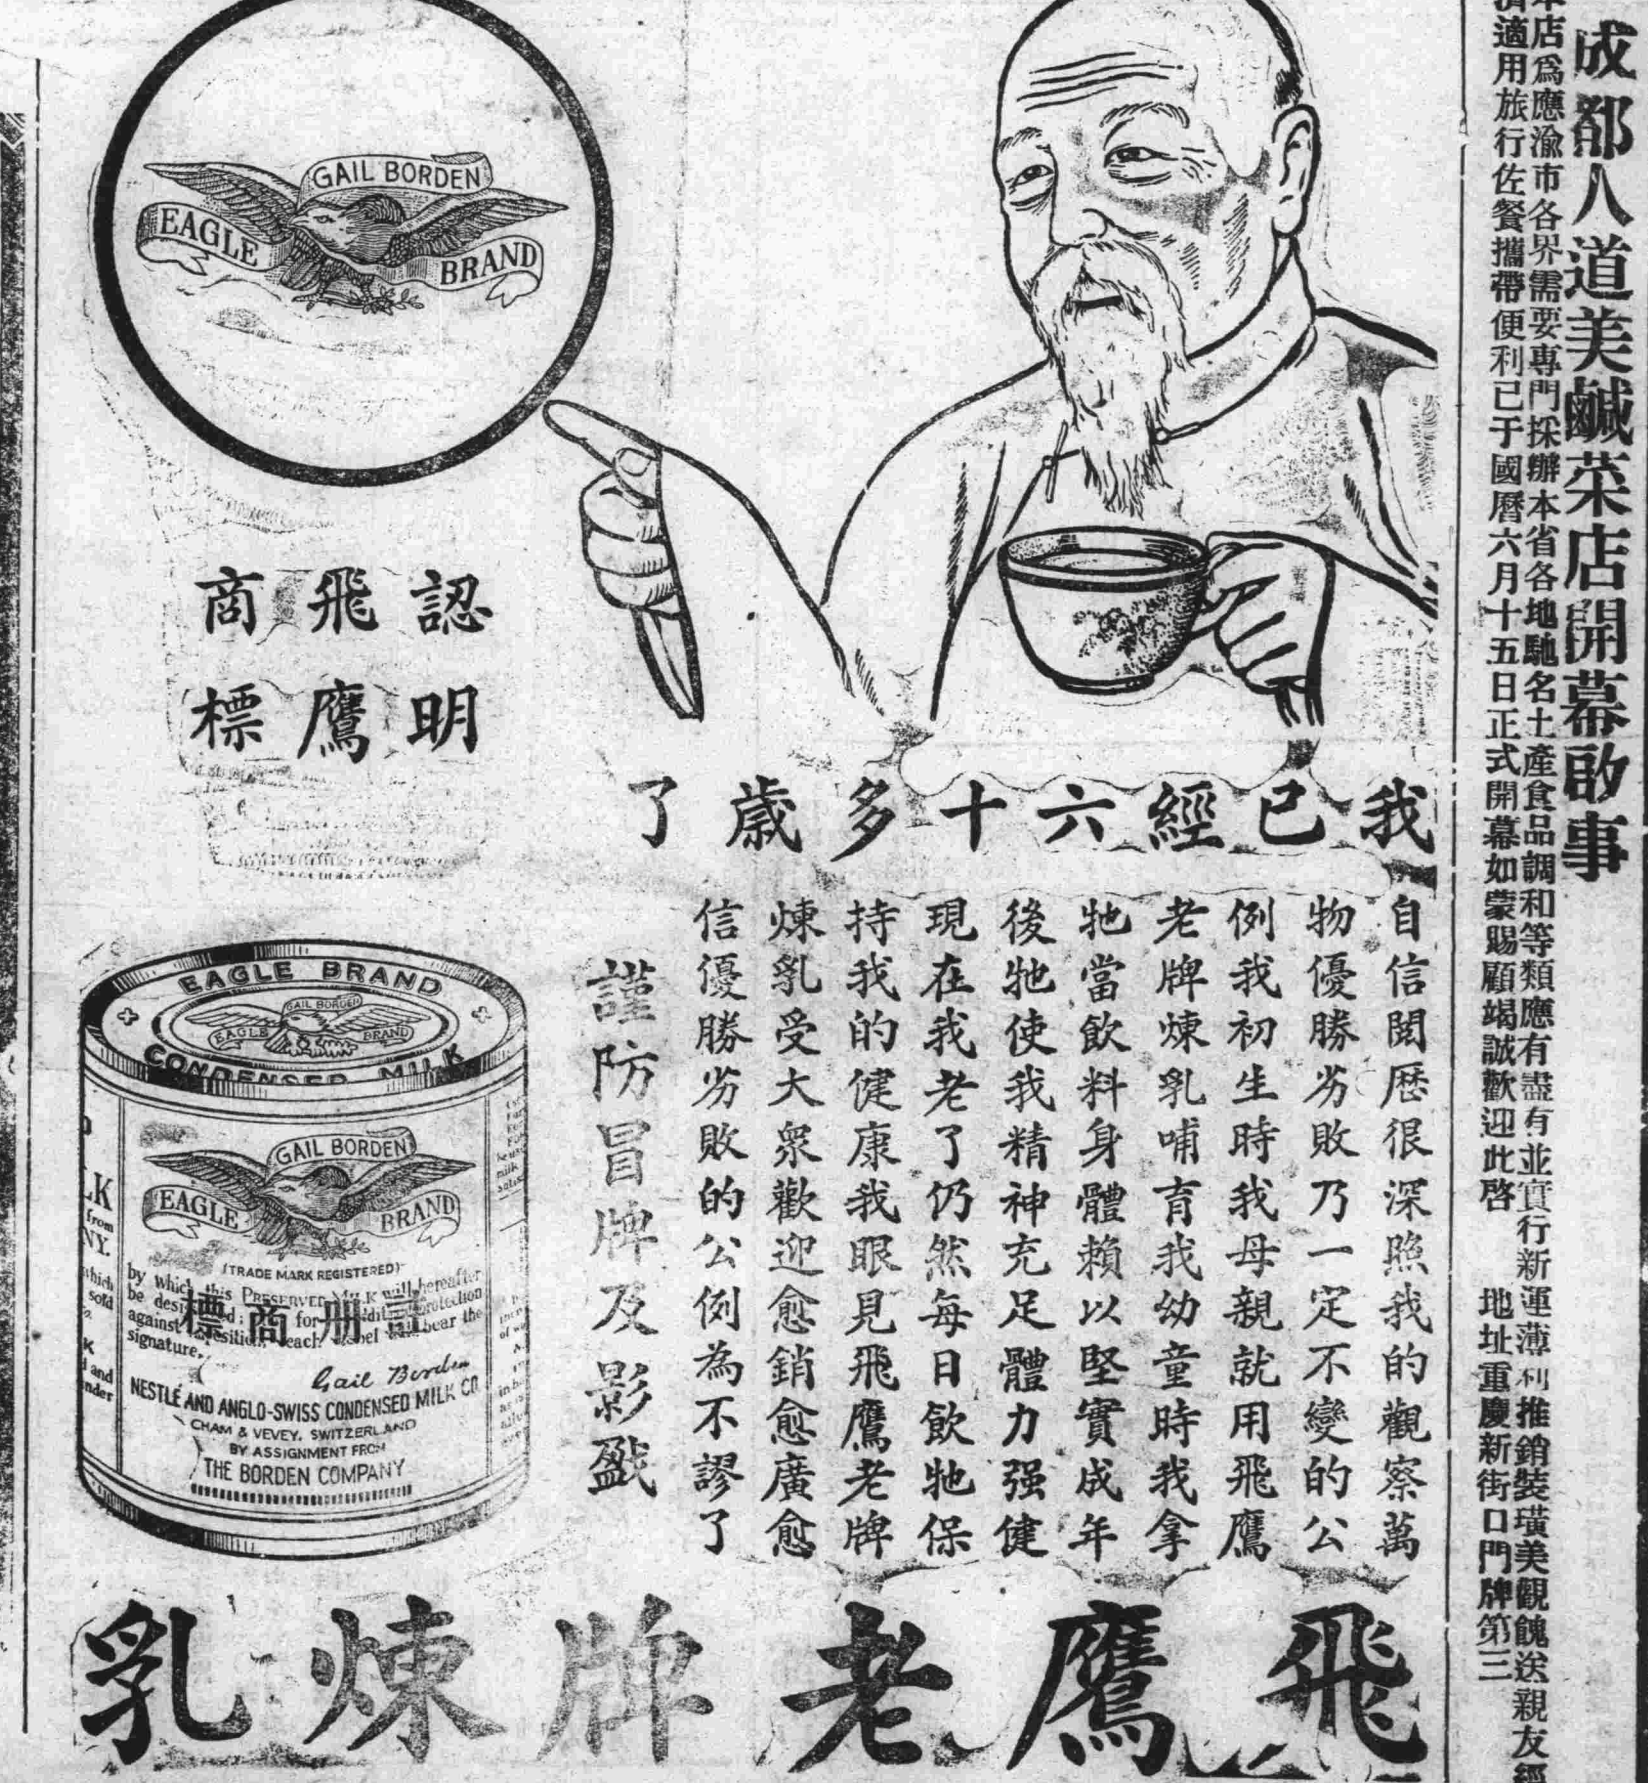 成都人道美鹹菜店開幕啟事
本店爲應渝市各界需要專門採辦本省各地馳名土產食品調和等類應有盡有並實行新運薄利推銷裝璜美觀餽送親友經
濟適用旅行佐餐攜帶便利已于國曆六月十五日正式開幕如蒙賜顧竭誠歡迎此啓 地址重慶新街口門牌第三
GAIL BORDEN
EAGLE BRAND
認明
飛鷹
商標
我已經六十多歲了
自信閱歷很深照我的觀察萬
物優勝劣敗乃一定不變的公
例我初生時我母親就用飛鷹
老牌煉乳哺育我幼童時我拿
牠當飲料身體賴以堅實成年
後牠使我精神充足體力强健
現在我老了仍然每日飲牠保
持我的健康我眼見飛鷹老牌
煉乳受大衆歡迎愈銷愈廣愈
信優勝劣敗的公例為不謬了
謹防冒牌及影戤
EAGLE BRAND
GAIL BORDEN
EAGLE BRAND
CONDENSED MILK
GAIL BORDEN
EAGLE BRAND
(TRADE MARK REGISTERED)
by which this PRESERVED MILK will hereafter
against
each
bear the
signature.
註册商標
Gail Borden
NESTLÉ AND ANGLO-SWISS CONDENSED MILK CO
CHAM & VEVEY, SWITZERLAND
BY ASSIGNMENT FROM
THE BORDEN COMPANY
飛鷹老牌煉乳